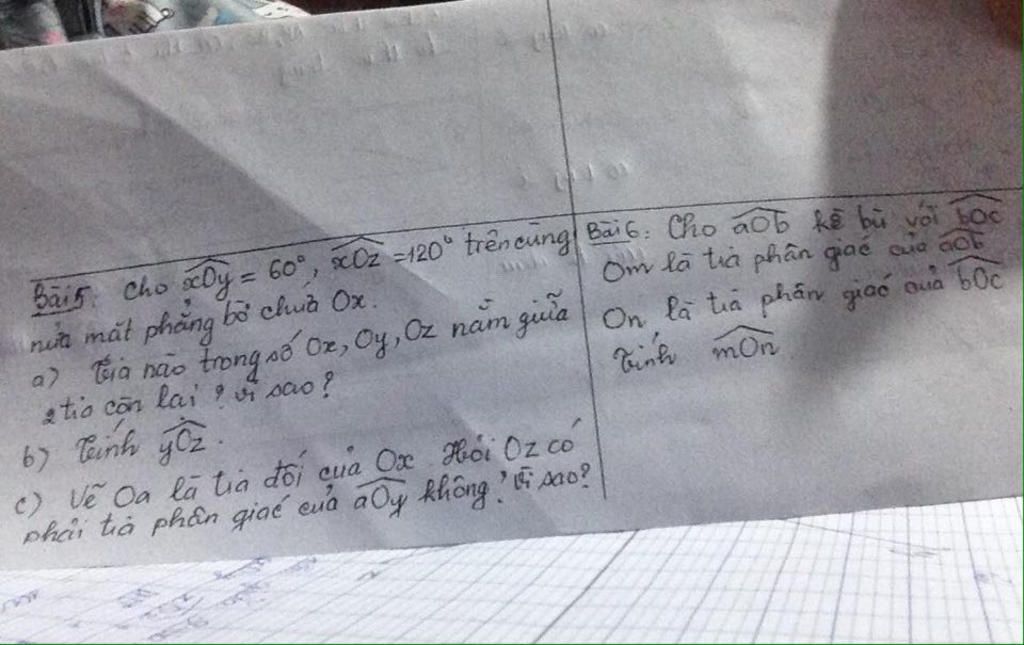 Bài 5: Cho xOy = 60°, xOz = 120° trên cùng
nửa mặt phẳng bờ chứa Ox.
a) Tia nào trong số Ox, Oy, Oz nằm giữa
2 tia còn lại? Vì sao?
b) Tính yOz.
c) Vẽ Oa là tia đối của Ox. Hỏi Oz có
phải tia phân giác của aOy không? Vì sao?
Bài 6: Cho aOb kề bù với bOc
Om là tia phân giác của aOb
On là tia phân giác của bOc
Tính mOn